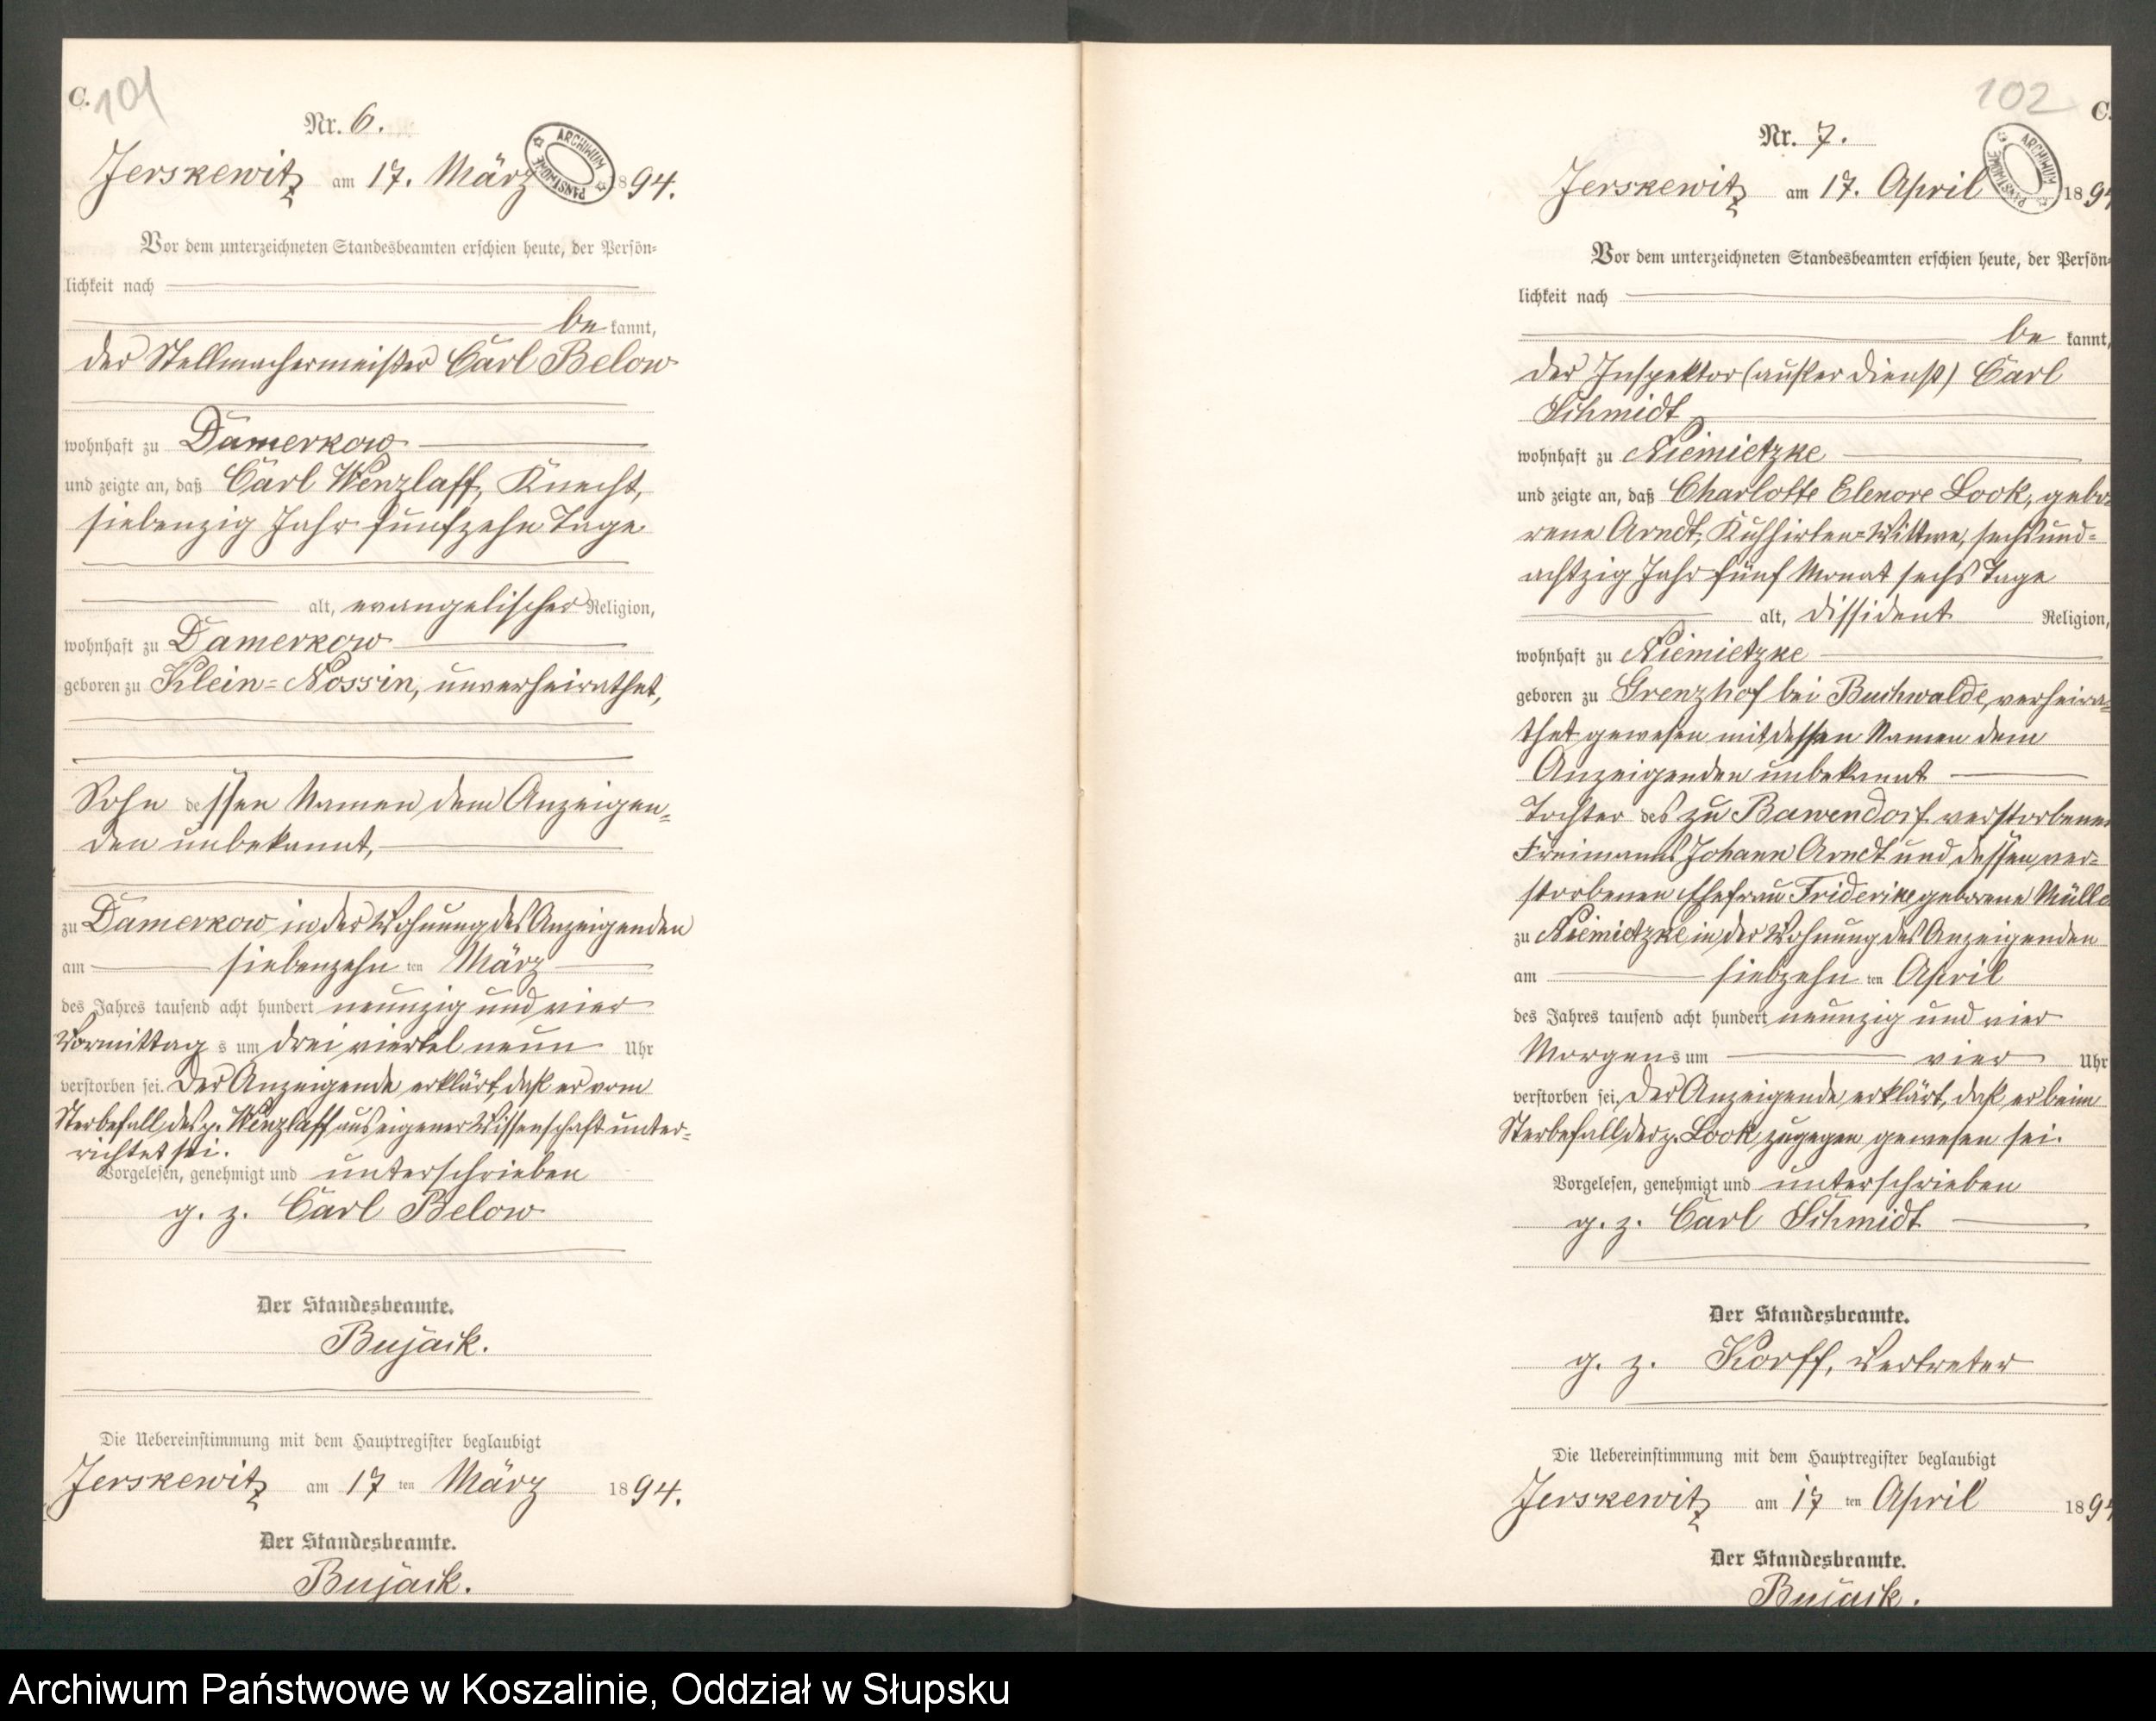 C. 101
Nr. 6.
ARCHIWUM PAŃSTWOWE
Jerskewitz am 17. März 1894.
Vor dem unterzeichneten Standesbeamten erschien heute, der Persön-
lichkeit nach
be kannt,
der Stellmachermeister Carl Below
wohnhaft zu Damerkow
und zeigte an, daß Carl Wenzlaff, Knecht,
siebenzig Jahr fünfzehn Tage
alt, evangelischer Religion,
wohnhaft zu Damerkow
geboren zu Klein-Nossin, unverheirathet,
Sohn dessen Namen dem Anzeigen-
den unbekannt,
zu Damerkow in der Wohnung des Anzeigenden
am siebenzehn ten März
des Jahres tausend acht hundert neunzig und vier
Vormittag s um drei viertel neun Uhr
verstorben sei. Der Anzeigende erklärt, daß er vom
Sterbefall des p. Wenzlaff aus eigener Wissenschaft unter-
richtet sei.
Vorgelesen, genehmigt und unterschrieben
g. z. Carl Below
Der Standesbeamte.
Bujack.
Die Uebereinstimmung mit dem Hauptregister beglaubigt
Jerskewitz am 17 ten März 1894.
Der Standesbeamte.
Bujack.
102 C.
Nr. 7.
ARCHIWUM PAŃSTWOWE
Jerskewitz am 17. April 189
Vor dem unterzeichneten Standesbeamten erschien heute, der Persön-
lichkeit nach
be kannt,
der Inspektor (außer Dienst) Carl
Schmidt
wohnhaft zu Niemietzke
und zeigte an, daß Charlotte Elenore Look, gebo-
rene Arndt, Kuhhirten-Wittwe, sechsund-
achtzig Jahr fünf Monat sechs Tage
alt, dissident Religion,
wohnhaft zu Niemietzke
geboren zu Grenzhof bei Buchwalde, verheira-
thet gewesen mit dessen Namen dem
Anzeigenden unbekannt
Tochter des zu Bawendorf verstorbenen
Freimanns Johann Arndt und dessen ver-
storbenen Ehefrau Friderike geborene Mülle
zu Niemietzke in der Wohnung des Anzeigenden
am siebzehn ten April
des Jahres tausend acht hundert neunzig und vier
Morgens um vier Uhr
verstorben sei, Der Anzeigende erklärt, daß er beim
Sterbefall der p. Look zugegen gewesen sei.
Vorgelesen, genehmigt und unterschrieben
g. z. Carl Schmidt
Der Standesbeamte.
g. z. Korff, Vertreter
Die Uebereinstimmung mit dem Hauptregister beglaubigt
Jerskewitz am 17 ten April 189
Der Standesbeamte.
Bujack.
Archiwum Państwowe w Koszalinie, Oddział w Słupsku